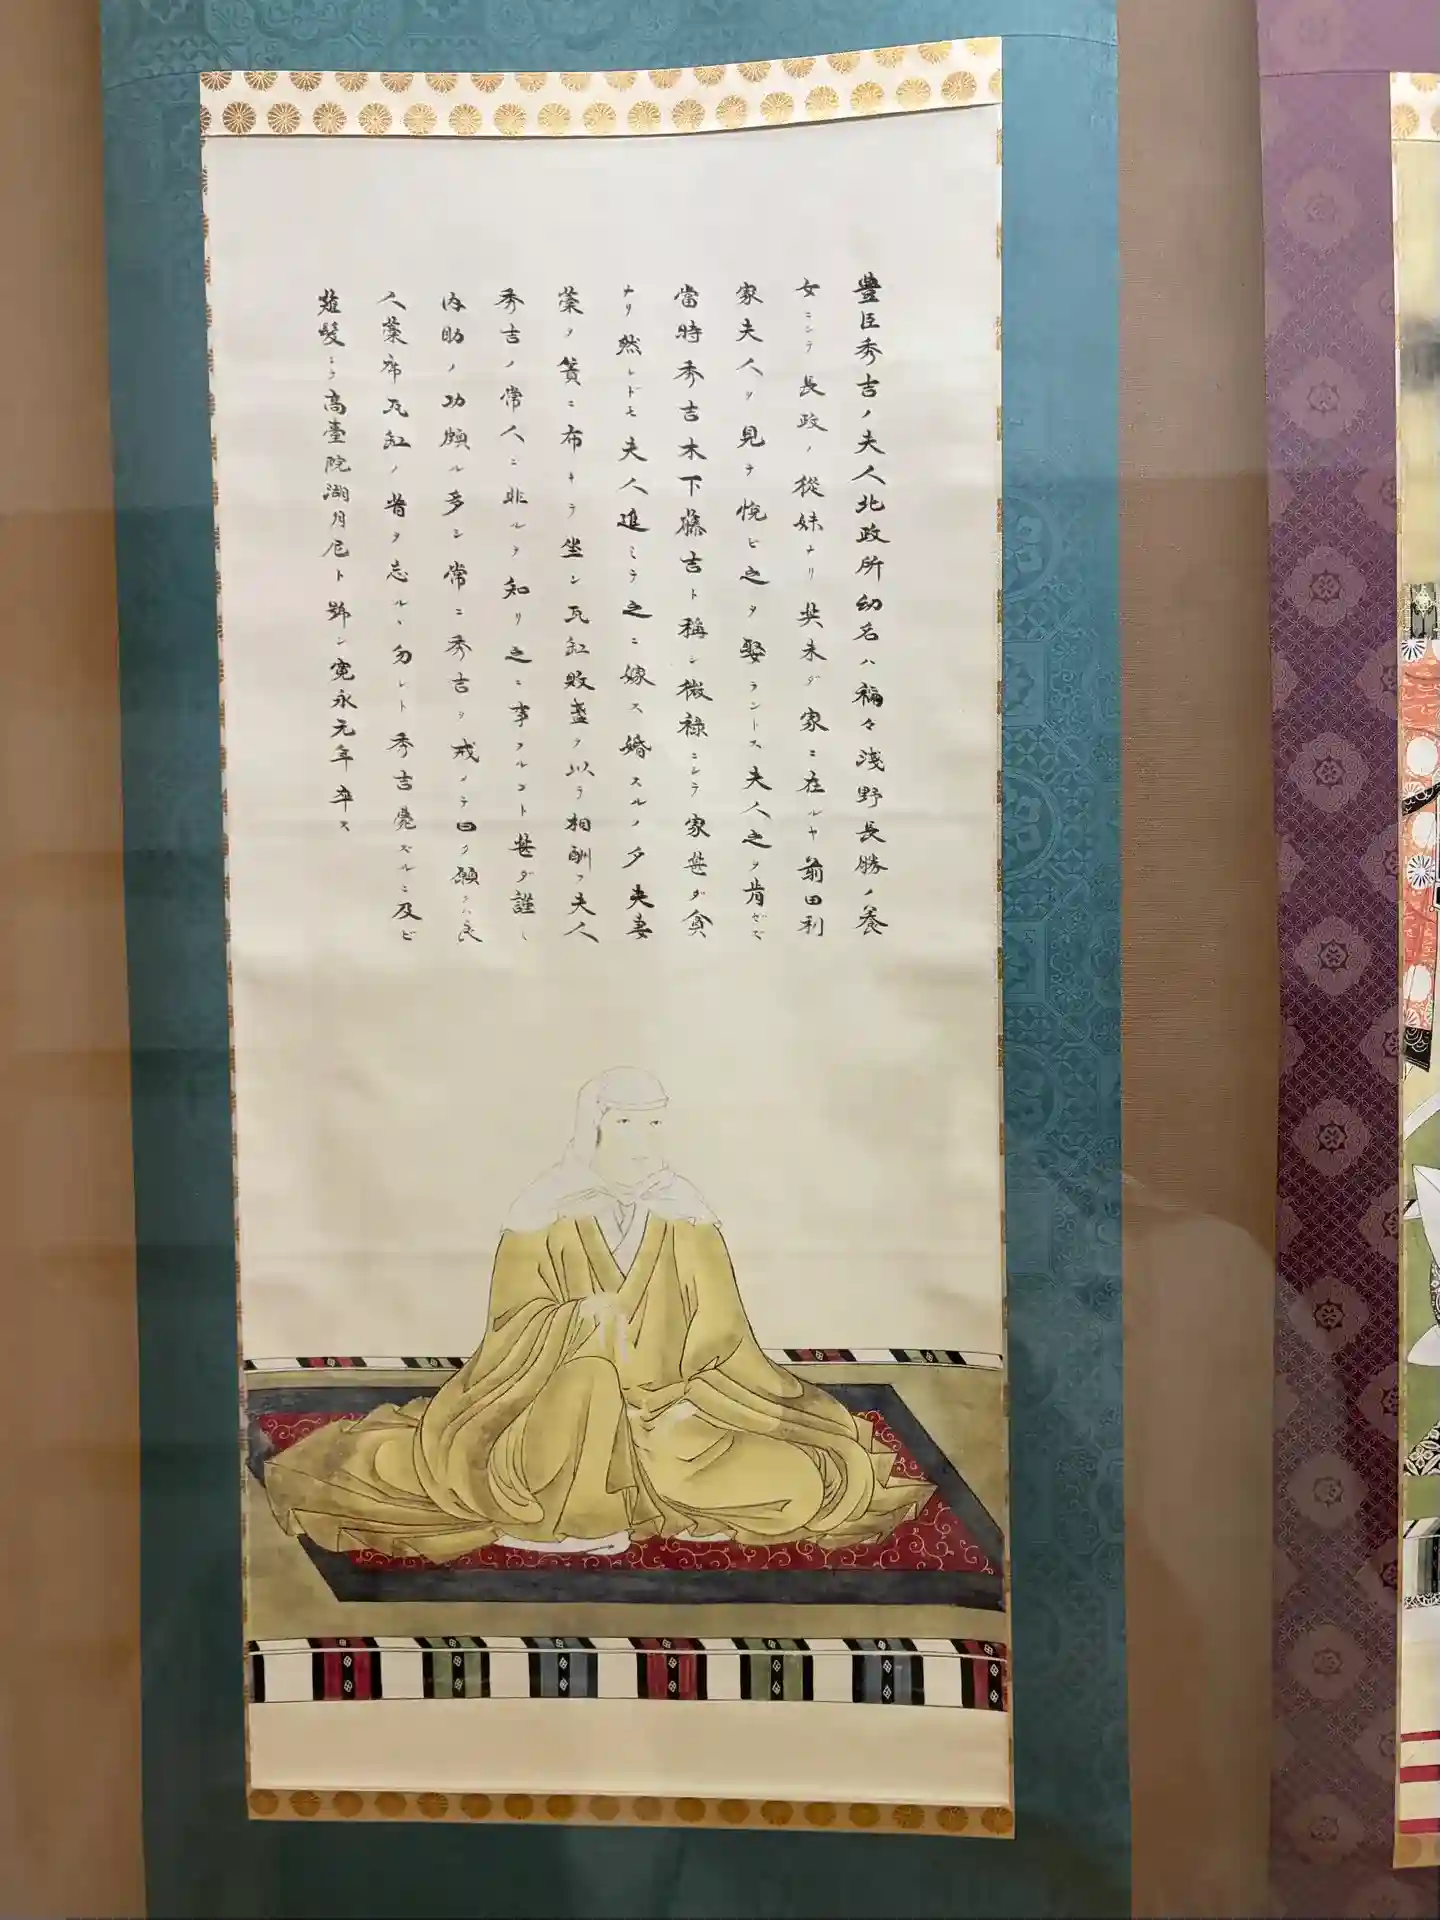 豊臣秀吉ノ夫人北政所幼名ハ禰々淺野長勝ノ養
女ニシテ長政ノ從妹ナリ其未ダ家ニ在ルヤ前田利
家夫人ヲ見テ悅ビ之ヲ娶ラントス夫人之ヲ肯ゼズ
當時秀吉木下藤吉ト稱シ微祿ニシテ家甚ダ貧
ナリ然レドモ夫人進ミテ之ニ嫁ス婚スルノ夕夫妻
藁ヲ簀ニ布キテ坐シ瓦缸敗盞ヲ以テ相酬フ夫人
秀吉ノ常人ニ非ルヲ知リ之ニ事フルコト甚ダ謹シ
內助ノ功頗ル多シ常ニ秀吉ヲ戒メテ曰ク願クハ良
人藁席瓦缸ノ昔ヲ忘ルヽ勿レト秀吉薨ズルニ及ビ
薙髮シテ高臺院湖月尼ト號シ寬永元年卒ス